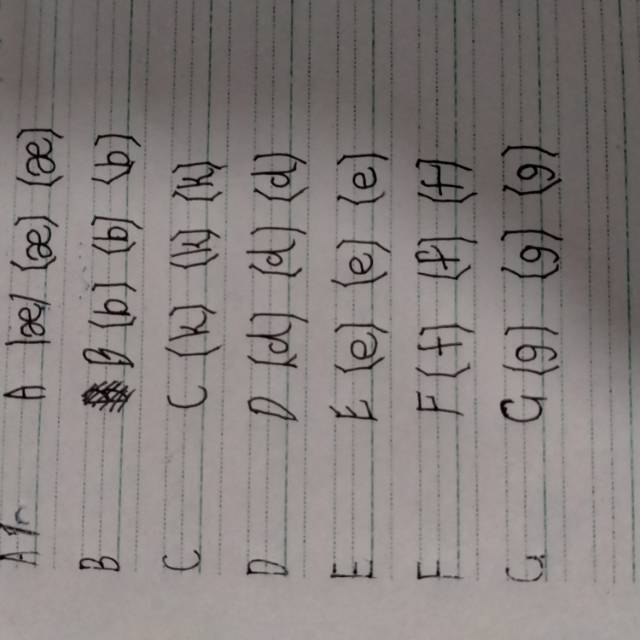 A A (æ) (æ) (æ)
B B (b) (b) (b)
C C (k) (k) (k)
D D (d) (d) (d)
E E (e) (e) (e)
F F (f) (f) (f)
G G (g) (g) (g)